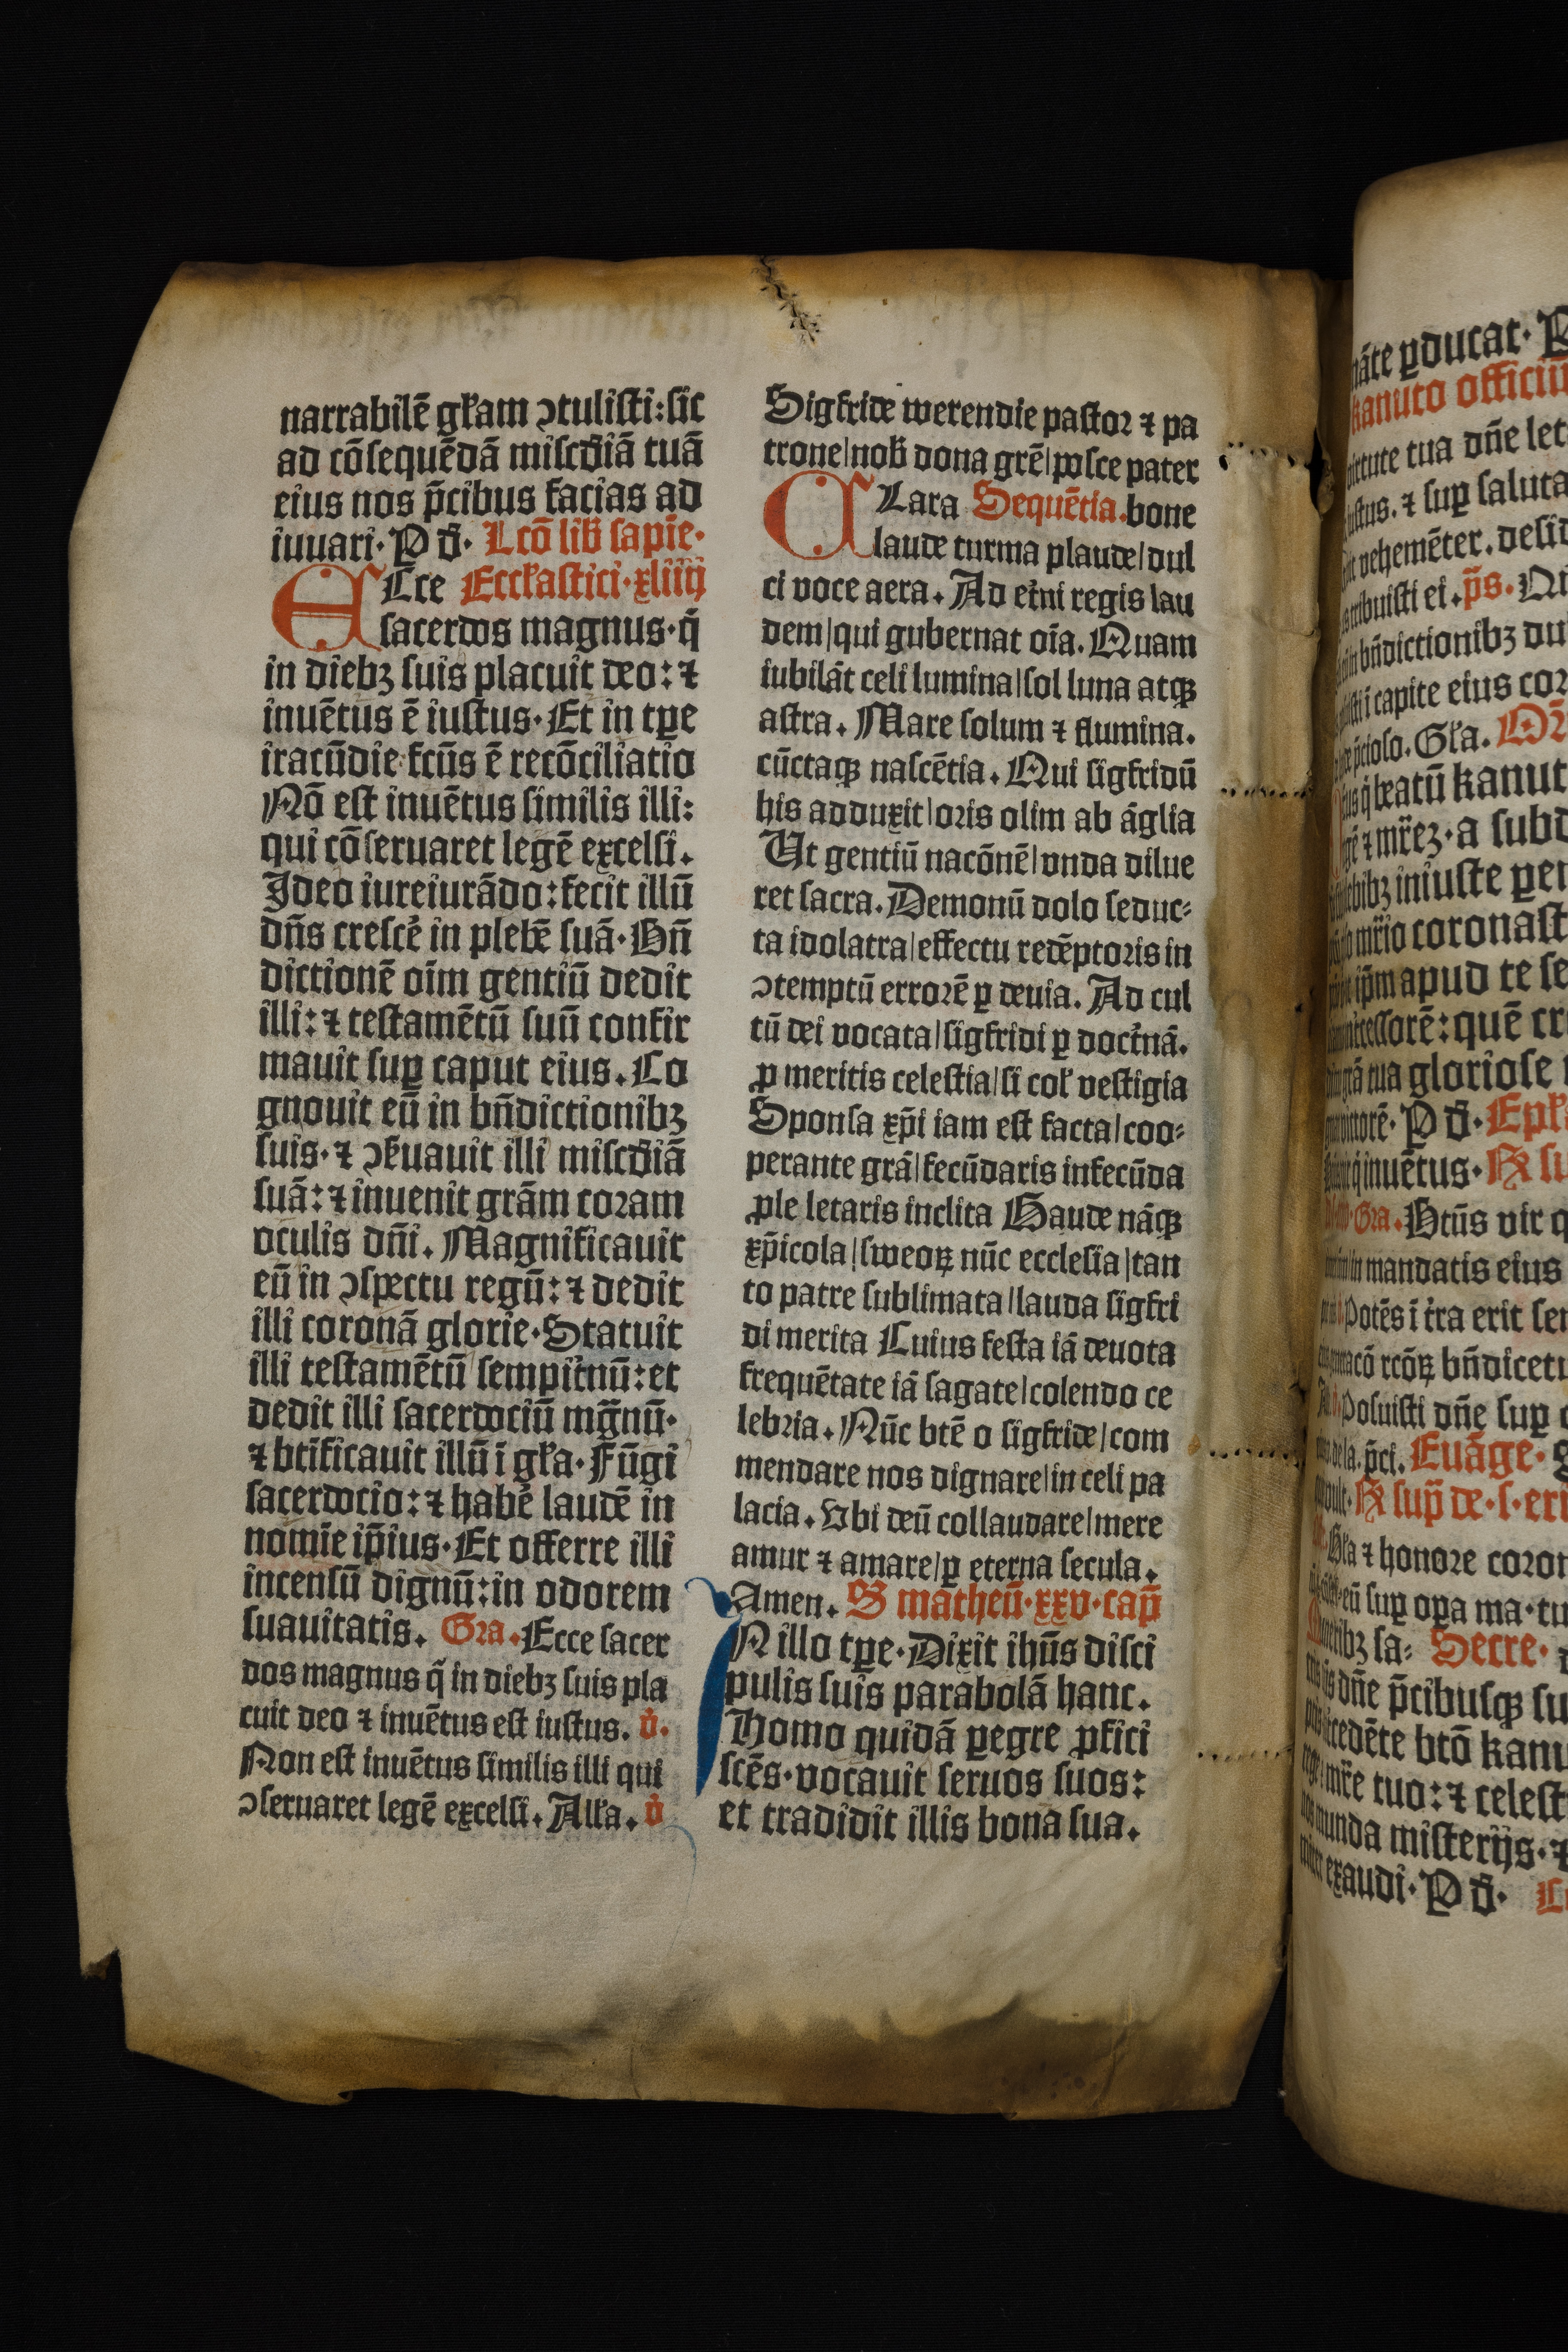 narrabilē gl̄am ↄtulisti: sic
ad cōsequēdā misc̄diā tuā
eius nos p̄cibus facias ad
iuuari· P d̄· Lcō lib̄ sapīe·
ECce Eccl̄astici· xliiij
sacerdos magnus· q̄
in diebꝫ suis placuit deo: ⁊
inuētus ē iustus· Et in tꝑe
iracūdie fctūs ē recōciliatio
Nō est inuētus similis illi:
qui cōseruaret legē excelsi.
Ideo iureiurādo: fecit illū
dn̄s crescē in plebē suā· Bn̄
dictionē oīm gentiū dedit
illi: ⁊ testamētū suū confir
mauit suꝑ caput eius. Co
gnouit eū in bn̄dictionibꝫ
suis· ⁊ ↄs̄uauit illi misc̄diā
suā: ⁊ inuenit grām coram
oculis dn̄i. Magnificauit
eū in ↄspectu regū: ⁊ dedit
illi coronā glorie· Statuit
illi testamētū sempit̄nū: et
dedit illi sacerdociū mḡnū·
⁊ btīficauit illū ī gl̄a· Fūgi
sacerdocio: ⁊ habē laudē in
nomīe ip̄ius· Et offerre illi
incensū dignū: in odorem
suauitatis. Gra. Ecce sacer
dos magnus q̄ in diebꝫ suis pla
cuit deo ⁊ inuētus est iustus. v̇.
Non est inuētus similis illi qui
ↄseruaret legē excelsi. All̄a. v̇
Sigfride werendie pastor ⁊ pa
trone/nob̄ dona grē/posce pater
CLara Sequētia. bone
laude turma plaude/dul
ci voce aera. Ad et̄ni regis lau
dem/qui gubernat oīa. Quam
iubilāt celi lumina/sol luna atqꝫ
astra. Mare solum ⁊ flumina.
cūctaqꝫ nascētia. Qui sigfridū
his adduxit/oris olim ab āglia
Ut gentiū nacōnē/vnda dilue
ret sacra. Demonū dolo seduc⸗
ta idolatra/effectu redēptoris in
ↄtemptū errorē ꝑ deuia. Ad cul
tū dei vocata/sigfridi ꝑ doct̄nā.
ꝓ meritis celestia/si col̄ vestigia
Sponsa xp̄i iam est facta/coo⸗
perante grā/fecūdaris infecūda
ꝓle letaris inclita Gaude nāqꝫ
xp̄icola/sweoꝝ nūc ecclesia/tan
to patre sublimata/lauda sigfri
di merita Cuius festa iā deuota
frequētate iā sagate/colendo ce
lebria. Nūc btē o sigfride/com
mendare nos dignare/in celi pa
lacia. Vbi deū collaudare/mere
amur ⁊ amare/ꝑ eterna secula.
Amen. S matheū· xxv· cap̄
IN illo tꝑe· Dixit ihūs disci
pulis suis parabolā hanc.
Homo quidā ꝑegre ꝓfici
scēs· vocauit seruos suos:
et tradidit illis bona sua.
ꝑducat·
kanuto officiū
tute tua dn̄e let
⁊ suꝑ saluta
vehemēter. desid
ei. p̄s.
bn̄dictionibꝫ du
capite eius cor
Gl̄a.
beatū kanut
a subd
iniuste ꝑer
coronast
ip̄m apud te se
quē cr
tua gloriose
P d̄· Epl̄
inuētus·
Gra. Btūs vir q
in mandatis eius
Potēs ī t̄ra erit sem
bn̄dicetu
Posuisti dn̄e suꝑ c
p̄ci. Euāge·
sup̄ de· s· eri
Gl̄a ⁊ honore coron
eū suꝑ oꝑa ma· tu
Secre·
dn̄e p̄cibusqꝫ su
btō kanu
tuo: ⁊ celest
munda misterijs·
exaudi· P d̄·